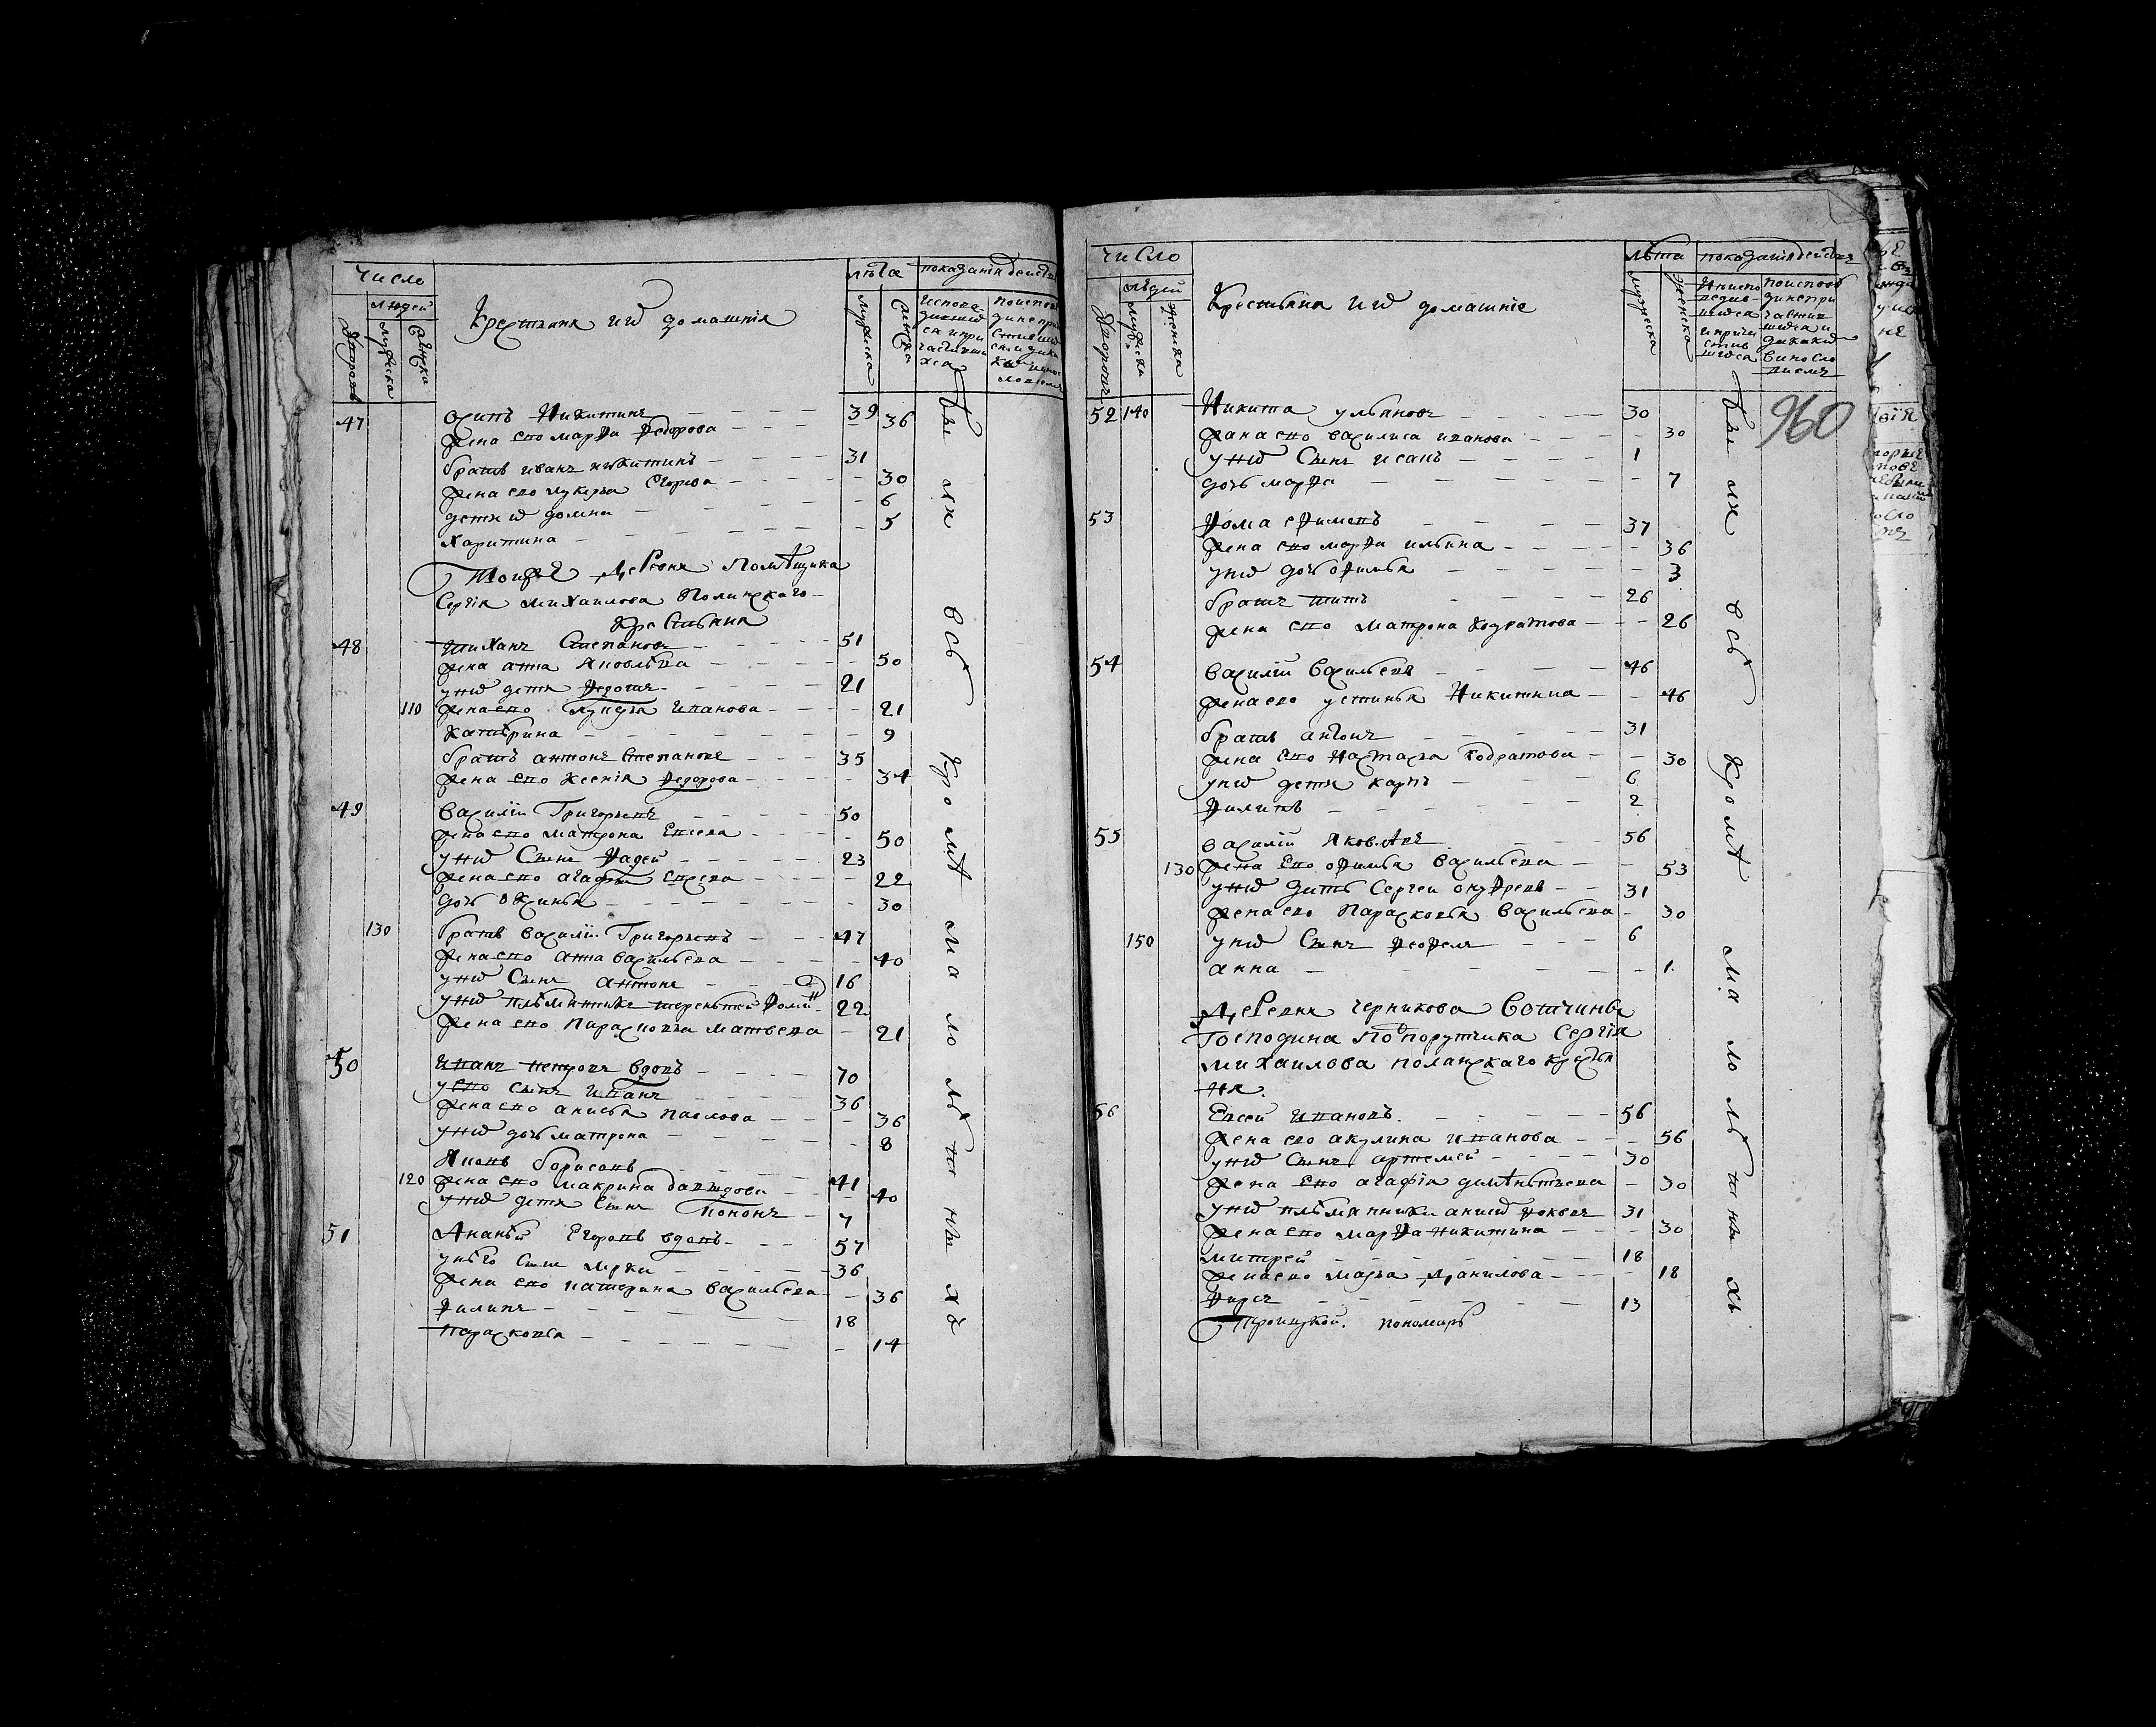 число
людей
Дворовъ
мужеска
женска
Крестьяня ихъ домашнія
лѣта
мужеска
женска
показанія действ
испове
дивших
ся и при
частивши
хся
47 осипъ Никитинъ 39
жена ево марфа федорова 36
братъ иванъ никитинъ 31
жена ево лукерья Егорова 30
дети их домна 6
харитина 5
Тоижъ деревня помѣщика
Сергія михаилова Полянскаго
крестьяня
48 тиханъ Степановъ 51
жена анна яковлѣва 50
у них дети федотъ 21
110 жена ево лукерья иванова 21
катѣрина 9
братъ антонъ степановъ 35
жена ево ксенія федорова 34
49 василій Григорьевъ 50
жена ево матрона Евсева 50
у них сынъ фадей 23
жена ево агафья евсева 22
дочь оксинья 30
130 братъ василій Григорьевъ 47
жена ево анна васильева 40
у них сынъ антонъ 16
у них плѣмянникъ терентей фоми 22
жена ево парасковья матвева 21
50 иванъ петровъ вдовъ 70
у ево сынъ иванъ 36
жена ево анисья павлова 36
у них дочь матрона 8
яковъ борисовъ 41
120 жена ево макрина давыдова 40
у них дети сынъ кононъ 7
51 Ананьй Егоровъ вдовъ 57
у нѣго сынъ марки 36
жена ево катерина васильева 36
филипъ 18
парасковья 14
бы
ли
всѣ
кромѣ
ма
ло
лѣ
т
ны
хъ
число
людей
Дворовъ
мужеска
женска
Крестьяня их домашніе
лѣта
мужеска
женска
показанія действ
960
52 140 Никита ульяновъ 30
жана ево василиса иванова 30
у них сынъ исакъ 1
дочь марфа 7
53 фома ефимовъ 37
жена ево марфа ильина 36
у них дочь офимья 3
братъ титъ 26
жена ево матрона кодратова 26
54 василій васильевъ 46
жена ево устинья Никитина 46
братъ антонъ 31
жена ево настасья кодратова 30
у них дети карпъ 6
филипъ 2
55 василій яковлѣвъ 56
130 жена ево офимья васильева 53
у них дить сергеи онуфревъ 31
жена ево парасковья васильева 30
150 у них сынъ 6
анна 1
деревня черникова вотчины
господина подпорутчика сергія
михаилова полянскаго крестья
ня
56 Евсей ивановъ 56
жена ево акулина иванова 56
у них сынъ артемей 30
жена ево агафія димѣнтьева 30
у них плѣмянники 31
жена ево марфа никитина 30
митрей 18
жена ево марья данилова 18
фирсъ 13
Троицкой пономарь
бы
ли
всѣ
кромѣ
ма
ло
лѣ
т
ны
хъ